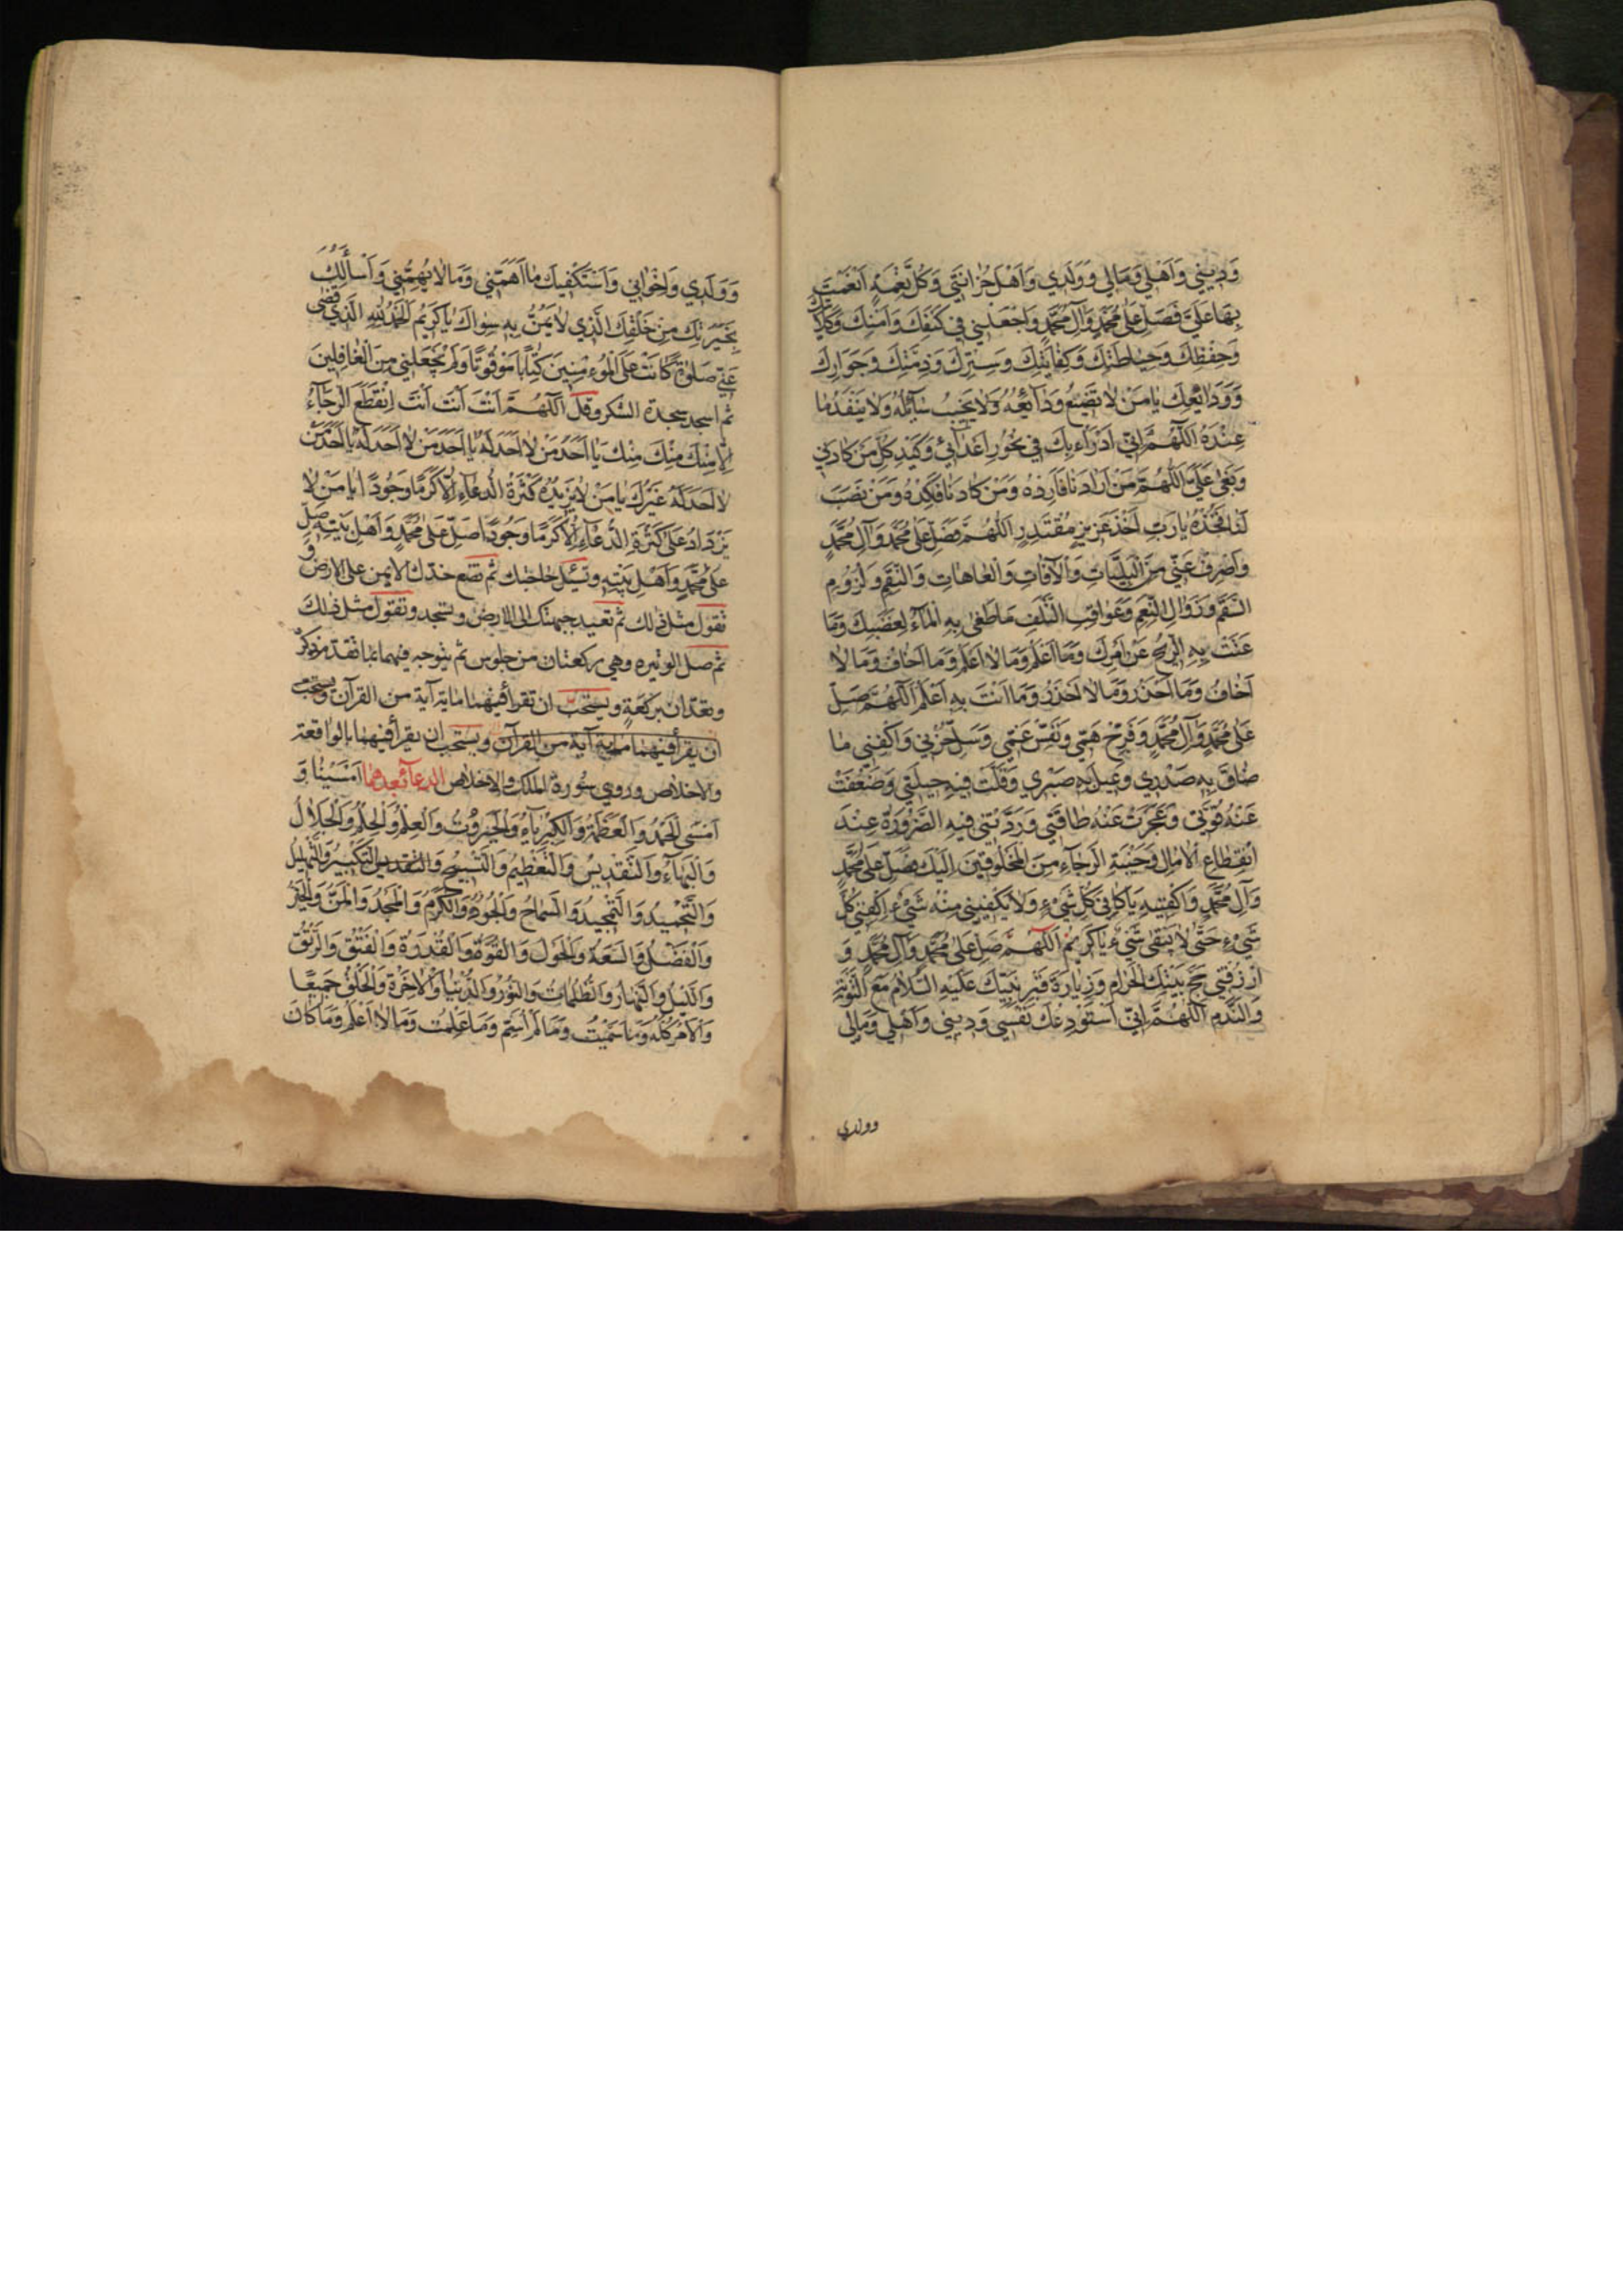 وَدِيني وَاَهْلي وَمَالي وَوَلَدي وَاَهْلَ حُزانَتي وَكُلَّ نِعْمَةٍ اَنْعَمْتَ
بِهَا عَلَيَّ فَصَلِّ عَلىٰ مُحَمَّدٍ وَآلِ مُحَمَّدٍ وَاجْعَلْني في كَنَفِكَ وَاَمْنِكَ وَكِلاءَتِكَ
وَحِفْظِكَ وَحِيٰاطَتِكَ وَكِفٰايَتِكَ وَسِتْرِكَ وَذِمَّتِكَ وَجَوارِكَ
وَوَدٰائِعِكَ يٰا مَنْ لٰا تَضيعُ وَدٰائِعُهُ وَلٰا يَخيبُ سٰآئِلُهُ وَلٰا يَنْفَدُ مٰا
عِنْدَهُ اَللّٰهُمَّ اِنّي اَدْرَاُ بِكَ في نُحُورِ اَعْدٰآئي وَكَيْدِ كُلِّ مَنْ كٰادَني
وَبَغىٰ عَلَيَّ اَللّٰهُمَّ مَنْ اَرٰادَنٰا فَاَرِدْهُ وَمَنْ كٰادَنٰا فَكِدْهُ وَمَنْ نَصَبَ
لَنٰا فَخُذْهُ يٰا رَبِّ اَخْذَ عَزيزٍ مُقْتَدِرٍ اَللّٰهُمَّ فَصَلِّ عَلىٰ مُحَمَّدٍ وَآلِ مُحَمَّدٍ
وَاصْرِفْ عَنّي مِنَ الْبَلِيّٰاتِ وَالْآفٰاتِ وَالْعٰاهٰاتِ وَالنِّقَمِ وَلُزُومِ
السَّقَمِ وَزَوٰالِ النِّعَمِ وَعَوٰاقِبِ التَّلَفِ مٰا طَغىٰ بِهِ الْمٰآءُ لِغَضَبِكَ وَمٰا
عَتَتْ بِهِ الرّيحُ عَنْ اَمْرِكَ وَمٰا اَعْلَمُ وَمٰا لٰا اَعْلَمُ وَمٰا اَخٰافُ وَمٰا لٰا
اَخٰافُ وَمٰا اَحْذَرُ وَمٰا لٰا اَحْذَرُ وَمٰا اَنْتَ بِهِ اَعْلَمُ اَللّٰهُمَّ صَلِّ
عَلىٰ مُحَمَّدٍ وَآلِ مُحَمَّدٍ وَفَرِّجْ هَمّي وَنَفِّسْ غَمّي وَسَلِّ حُزْني وَاكْفِني مٰا
ضٰاقَ بِهِ صَدْري وَعيلَ بِهِ صَبْري وَقَلَّتْ فيهِ حيلَتي وَضَعُفَتْ
عَنْهُ قُوَّتي وَعَجَزَتْ عَنْهُ طٰاقَتي وَرَدَّتْني فيهِ الضَّرُورَةُ عِنْدَ
اِنْقِطٰاعِ الْآمٰالِ وَخَيْبَةِ الرَّجٰآءِ مِنَ الْمَخْلُوقينَ اِلَيْكَ فَصَلِّ عَلىٰ مُحَمَّدٍ
وَآلِ مُحَمَّدٍ وَاكْفِنيهِ يٰا كٰافي كُلِّ شَيْءٍ وَلٰا يَكْفيني مِنْهُ شَيْءٌ اِكْفِني كُلَّ
شَيْءٍ حَتّىٰ لٰا يَبْقىٰ شَيْءٌ يٰا كَريمُ اَللّٰهُمَّ صَلِّ عَلىٰ مُحَمَّدٍ وَآلِ مُحَمَّدٍ وَ
ارْزُقْني حَجَّ بَيْتِكَ الْحَرٰامِ وَزِيٰارَةَ قَبْرِ نَبِيِّكَ عَلَيْهِ السَّلٰامُ مَعَ التَّوْبَةِ
وَالنَّدَمِ اَللّٰهُمَّ اِنّي اَسْتَوْدِعُكَ نَفْسي وَديني وَاَهْلي وَمٰالي
وولدي
وَوَلَدي وَاِخْوٰاني وَاَسْتَكْفيكَ مٰا اَهَمَّني وَمٰا لٰا يُهِمُّني وَاَسْأَلُكَ
بِخِيَرَتِكَ مِنْ خَلْقِكَ الَّذي لٰا يَمُنُّ بِهِ سِوٰاكَ يٰا كَريمُ اَلْحَمْدُ لِلّٰهِ الَّذي قَضىٰ
عَنّي صَلوٰةً كٰانَتْ عَلَى الْمُؤْمِنينَ كِتٰابًا مَوْقُوتًا وَلَمْ يَجْعَلْني مِنَ الْغٰافِلينَ
ثم اسجد سجدة الشكر وقل اَللّٰهُمَّ اَنْتَ اَنْتَ اَنْتَ اِنْقَطَعَ الرَّجٰآءُ
اِلّٰا مِنْكَ مِنْكَ يٰا اَحَدَ مَنْ لٰا اَحَدَ لَهُ يٰا اَحَدَ مَنْ لٰا اَحَدَ لَهُ يٰا اَحَدَ مَنْ
لٰا اَحَدَ لَهُ غَيْرُكَ يٰا مَنْ لٰا يَزيدُهُ كَثْرَةُ الدُّعٰآءِ اِلّٰا كَرَمًا وَجُودًا يٰا مَنْ لٰا
يَزْدٰادُ عَلىٰ كَثْرَةِ الدُّعٰآءِ اِلّٰا كَرَمًا وَجُودًا صَلِّ عَلىٰ مُحَمَّدٍ وَاَهْلِ بَيْتِهِ صَلِّ
عَلىٰ مُحَمَّدٍ وَاَهْلِ بَيْتِهِ وتسئل حاجتك ثم تضع خدك الايمن على الارض و
تقول مثل ذلك ثم تعيد جبهتك الى الارض وتسجد وتقول مثل ذلك
ثم صل الوتيره وهي ركعتان من جلوس ثم يتوجه فيهما بما تقدم ذكره
وتعدان بركعة ويستحب ان تقرأ فيهما ماية آية من القرآن ويستحب
ان يقرأ فيهما ماية آية من القرآن ويستحب ان يقرأ فيهما بالواقعة
والاخلاص وروي سورة الملك والاخلاص الدعآء بعدهما اَمْسَيْنٰا وَ
اَمْسَى الْحَمْدُ وَالْعَظَمَةُ وَالْكِبْرِيٰآءُ وَالْجَبَرُوتُ وَالْعِلْمُ وَالْحِلْمُ وَالْجَلٰالُ
وَالْبَهٰآءُ وَالتَّقْديسُ وَالتَّعْظيمُ وَالتَّسْبيحُ وَالتَّقْديسُ وَالتَّكْبيرُ وَالتَّهْليلُ
وَالتَّحْميدُ وَالتَّمْجيدُ وَالسَّمٰاحُ وَالْجُودُ وَالْكَرَمُ وَالْمَجْدُ وَالْمَنُّ وَالْخَيْرُ
وَالْفَضْلُ وَالسَّعَةُ وَالْحَوْلُ وَالْقُوَّةُ وَالْقُدْرَةُ وَالْفَتْقُ وَالرَّتْقُ
وَاللَّيْلُ وَالنَّهٰارُ وَالظُّلُمٰاتُ وَالنُّورُ وَالدُّنْيٰا وَالْآخِرَةُ وَالْخَلْقُ جَميعًا
وَالْاَمْرُ كُلُّهُ وَمٰا سَمَّيْتُ وَمٰا لَمْ اُسَمِّ وَمٰا عَلِمْتُ وَمٰا لٰا اَعْلَمُ وَمٰا كٰانَ